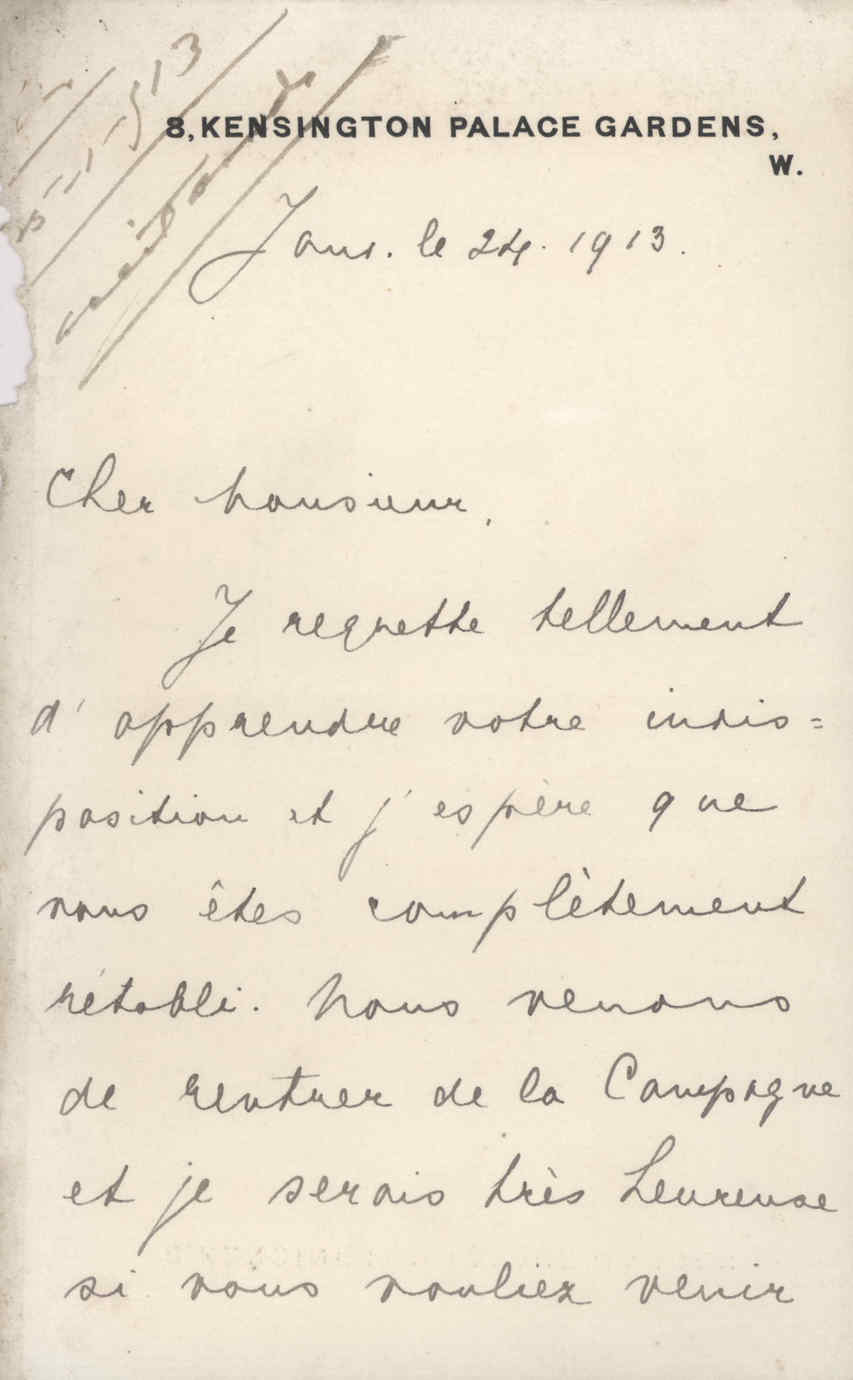 8, KENSINGTON PALACE GARDENS,
W.
Janv. le 24. 1913.
Cher Monsieur,
Je regrette tellement
d'apprendre votre indis=
position et j'espère que
vous êtes complètement
rétabli. Nous venons
de rentrer de la Campagne
et je serais très heureuse
si vous vouliez venir